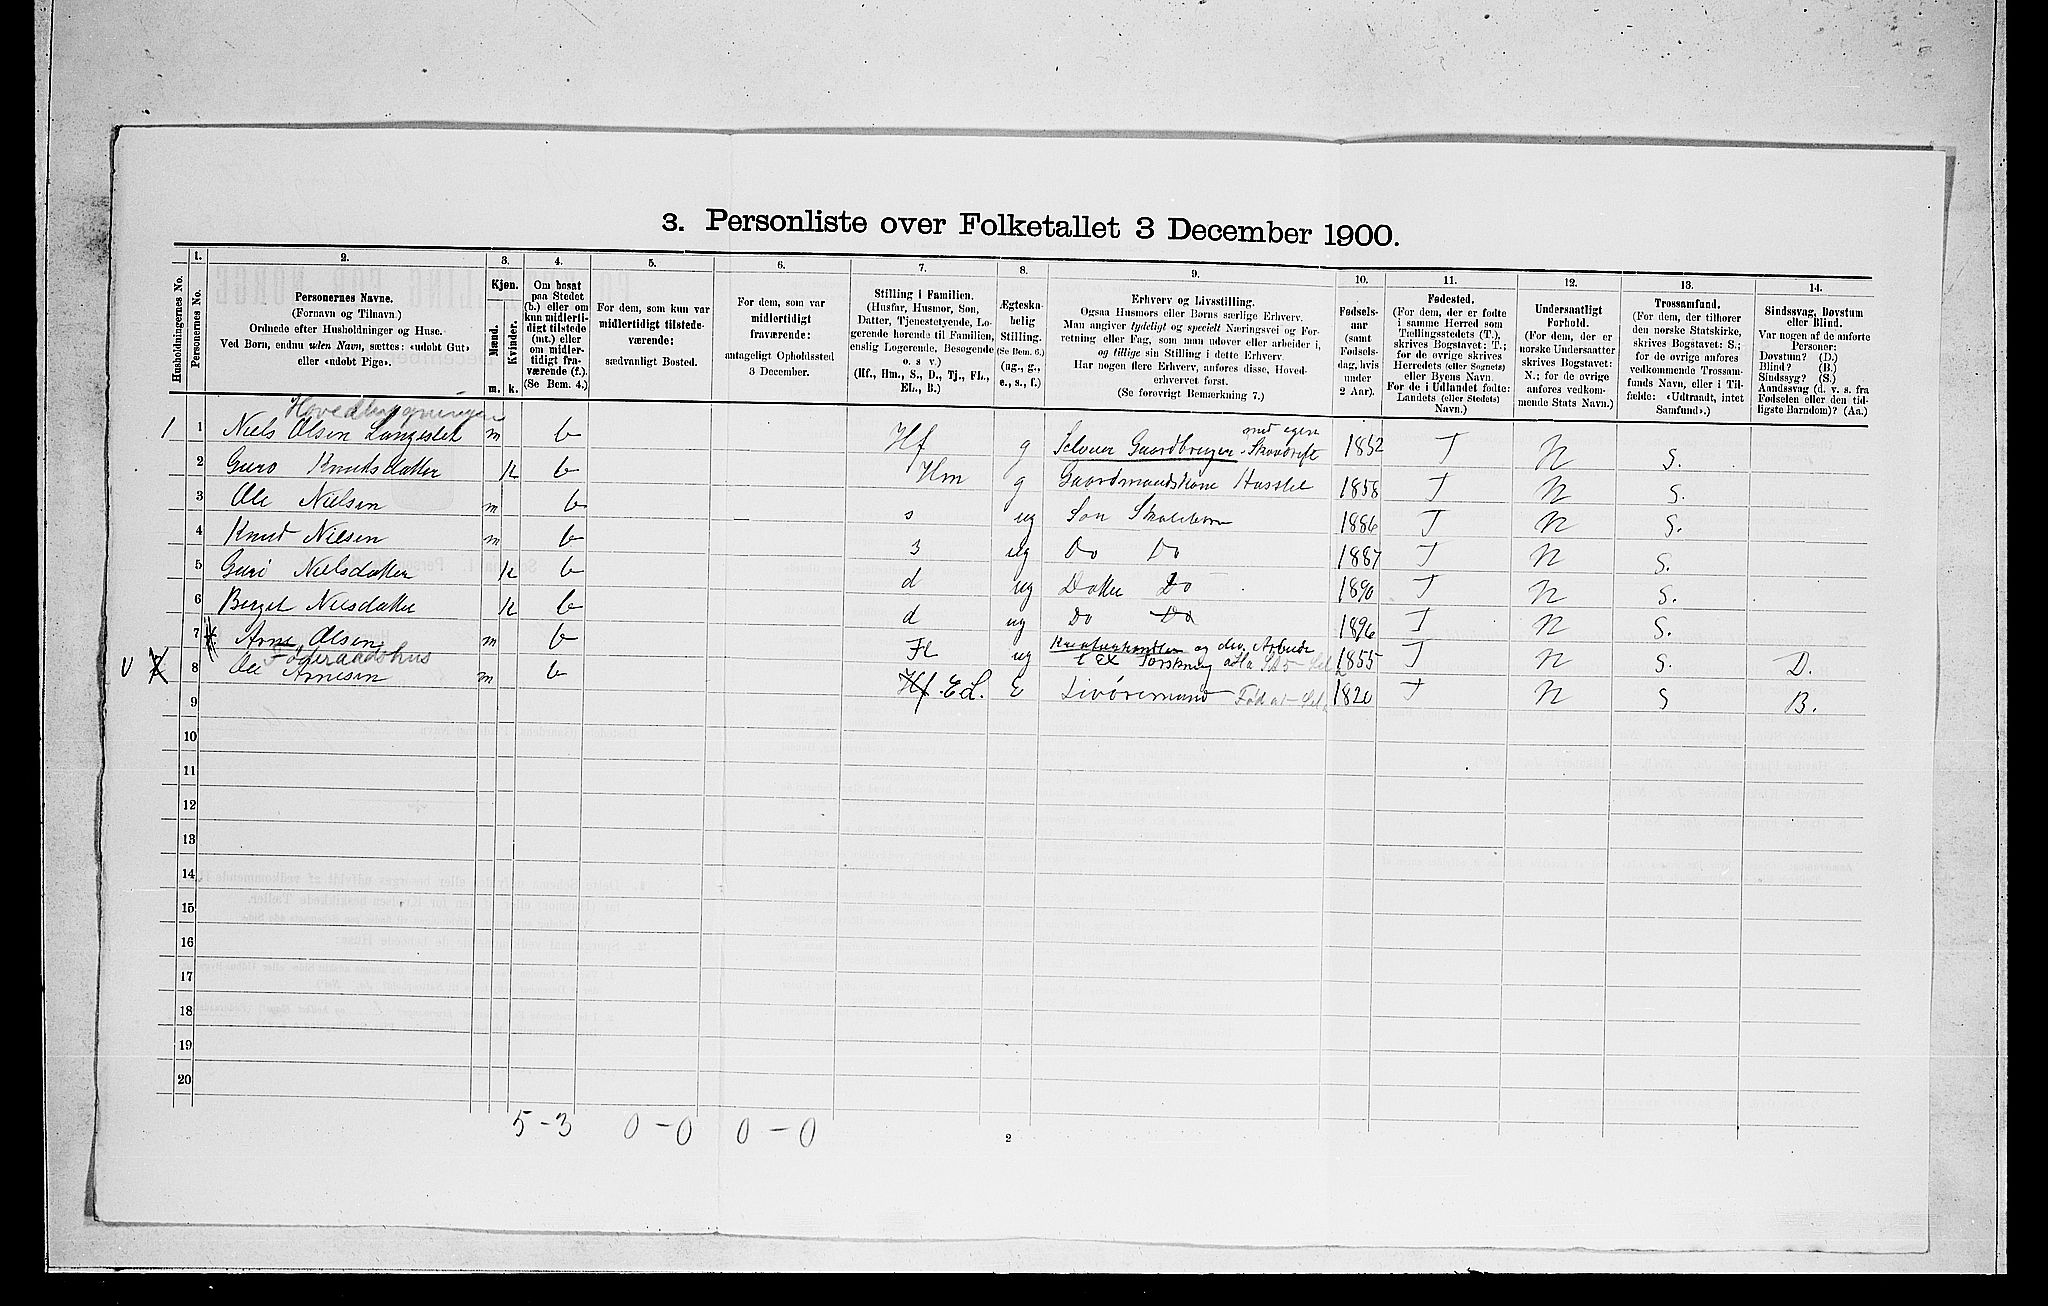 3. Personliste over Folketallet 3 December 1900.
Husholdningernes No.
1.
Personernes No.
2.
Personernes Navne.
(Fornavn og Tilnavn.)
Ordnede efter Husholdninger og Huse.
Ved Børn, endnu uden Navn, sættes: «udøbt Gut»
eller «udøbt Pige».
3.
Kjøn.
Mænd.
Kvinder.
m. k.
4.
Om bosat
paa Stedet
(b.) eller om
kun midlerti-
digt tilstede
(mt.) eller
om midler-
tidigt fra-
værende (f.).
(Se Bem. 4.)
5.
For dem, som kun var
midlertidigt tilstede-
værende:
sædvanligt Bosted.
6.
For dem, som var
midlertidigt
fraværende:
antageligt Opholdssted
3 December.
7.
Stilling i Familien.
(Husfar, Husmor, Søn,
Datter, Tjenestetyende, Lo-
gerende hørende til Familien,
enslig Logerende, Besøgende
o. s v.)
(Hf., Hm., S., D., Tj., FL.,
EL., B.)
8.
Ægteska-
belig
Stilling.
(Se Bem. 6.)
(ug., g.,
e., s., f.)
9.
Erhverv og Livsstilling.
Ogsaa Husmors eller Børns særlige Erhverv.
Man angiver tydeligt og specielt Næringsvei og For-
retning eller Fag, som man udøver eller arbeider i,
og tillige sin Stilling i dette Erhverv.
Har nogen flere Erhverv, anføres disse, Hoved-
erhvervet først.
(Se forøvrigt Bemærkning 7.)
10.
Fødsels-
aar
(samt
Fødsels-
dag, hvis
under
2 Aar).
11.
Fødested.
(For dem, der er fødte
i samme Herred som
Tællingsstedets (T.),
skrives Bogstavet: T.;
for de øvrige skrives
Herredets (eller Sognets)
eller Byens Navn.
For de i Udlandet fødte:
Landets (eller Stedets)
Navn.)
12.
Undersaatligt
Forhold.
(For dem, der er
norske Undersaatter
skrives Bogstavet:
N.; for de øvrige
anføres vedkom-
mende Stats Navn.)
13.
Trossamfund.
(For dem, der tilhører
den norske Statskirke,
skrives Bogstavet: S.;
for de øvrige anføres
vedkommende Trossam-
funds Navn, eller i Til-
fælde: «Udtraadt, intet
Samfund».)
14.
Sindssvag, Døvstum
eller Blind.
Var nogen af de anførte
Personer:
Døvstum? (D.)
Blind? (B.)
Sindssyg? (S.)
Aandssvag (d. v. s. fra
Fødselen eller den tid-
ligste Barndom)? (Aa.)
Hovedbygningen
1 1 Niels Olsen Langeslet m b Hf g Selveier Gaardbruger med egen Skovdrift 1852 T N S.
2 Guro Knutsdatter k b Hm g Gaardmandskone Husstel 1858 T N S.
3 Ole Nielsen m b s ug Søn Skolebarn 1886 T N S.
4 Knud Nilsen m b s ug Do Do 1887 T N S.
5 Guri Nielsdatter k b d ug Datter Do 1890 T N S.
6 Berget Nilsdatter k b d ug Do Do 1896 T N S.
7 Arne Olsen m b FL ug og div. Arbeide 1855 T N S. D.
Føderaadshus
8 Ole Arnesen m b Hf. EL. E 1820 T N S B.
9
10
11
12
13
14
15
16
17
18
19
20
5-3 0-0 0-0
2